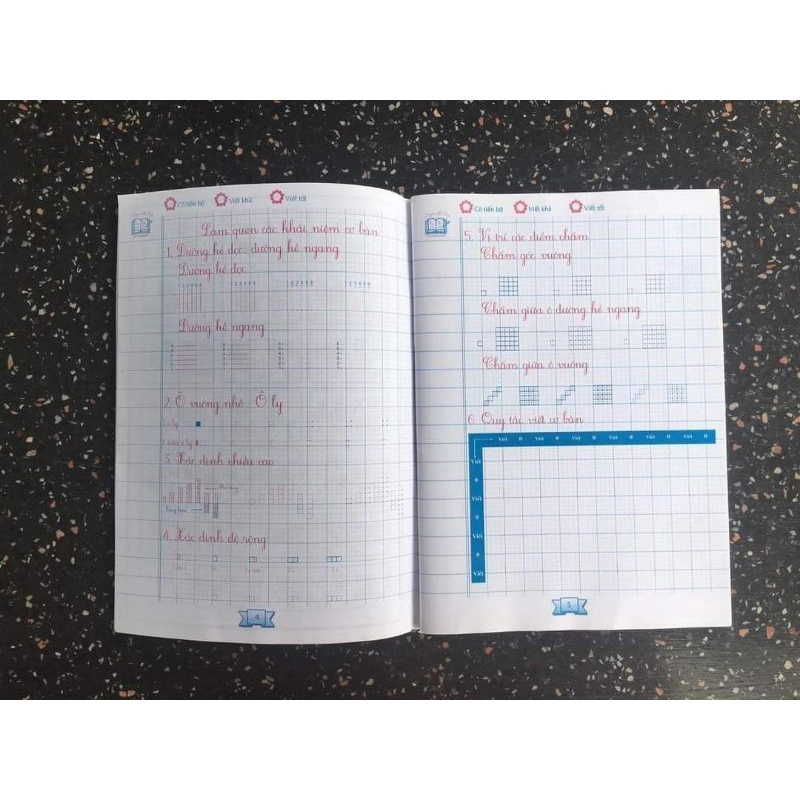 Có tiến bộ Viết khá Viết tốt
Làm quen các khái niệm cơ bản
1. Đường kẻ dọc, đường kẻ ngang
Đường kẻ dọc
Đường kẻ ngang
2. Ô vuông nhỏ Ô ly
3. Xác định chiều cao
4. Xác định độ rộng
4
Có tiến bộ Viết khá Viết tốt
5. Vị trí các điểm chấm
Chấm góc vuông
Chấm giữa ô đường kẻ ngang
Chấm giữa ô vuông
6. Quy tắc viết cơ bản
Viết B Viết B Viết B Viết B Viết B Viết B
Viết
B
Viết
B
Viết
B
Viết
5